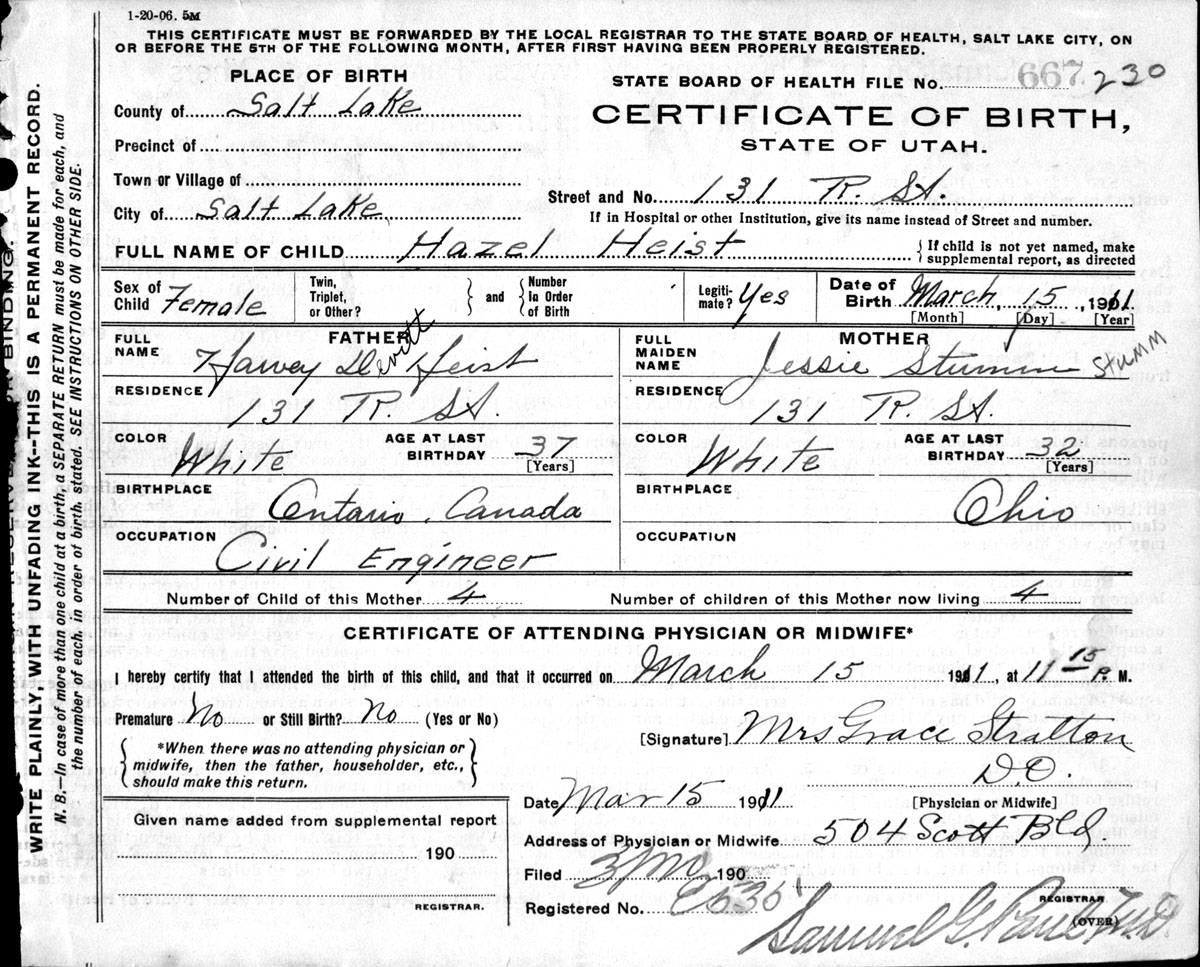 1-20-06. 5M
THIS CERTIFICATE MUST BE FORWARDED BY THE LOCAL REGISTRAR TO THE STATE BOARD OF HEALTH, SALT LAKE CITY, ON
OR BEFORE THE 5TH OF THE FOLLOWING MONTH, AFTER FIRST HAVING BEEN PROPERLY REGISTERED.
PLACE OF BIRTH
STATE BOARD OF HEALTH FILE No. 667 230
County of Salt Lake
CERTIFICATE OF BIRTH,
STATE OF UTAH.
Precinct of
Town or Village of
Street and No. 131 R. St.
City of Salt Lake
If in Hospital or other Institution, give its name instead of Street and number.
FULL NAME OF CHILD Hazel Heist
{ If child is not yet named, make
supplemental report, as directed
Sex of Child Female
Twin, Triplet, or Other? } and { Number in Order of Birth
Legiti-mate? Yes
Date of Birth March 15, 1911
[Month] [Day] [Year]
FATHER
FULL NAME Harvey Devitt Heist
RESIDENCE 131 R. St.
COLOR White
AGE AT LAST BIRTHDAY 37 [Years]
BIRTHPLACE Ontario, Canada
OCCUPATION Civil Engineer
MOTHER
FULL MAIDEN NAME Jessie Stumm Stumm
RESIDENCE 131 R. St.
COLOR White
AGE AT LAST BIRTHDAY 32 [Years]
BIRTHPLACE Ohio
OCCUPATION
Number of Child of this Mother 4 Number of children of this Mother now living 4
CERTIFICATE OF ATTENDING PHYSICIAN OR MIDWIFE*
I hereby certify that I attended the birth of this child, and that it occurred on March 15 1911, at 11 15 P. M.
Premature No or Still Birth? No (Yes or No)
{ *When there was no attending physician or
midwife, then the father, householder, etc.,
should make this return. }
[Signature] Mrs Grace Stratton
D.O.
[Physician or Midwife]
Date Mar 15 1911
Address of Physician or Midwife 504 Scott Bld.
Given name added from supplemental report
190
REGISTRAR.
Filed 190
Registered No.
Samuel G.
REGISTRAR.
(OVER)
WRITE PLAINLY, WITH UNFADING INK--THIS IS A PERMANENT RECORD.
N. B.—In case of more than one child at a birth, a SEPARATE RETURN must be made for each, and
the number of each, in order of birth, stated. SEE INSTRUCTIONS ON OTHER SIDE.